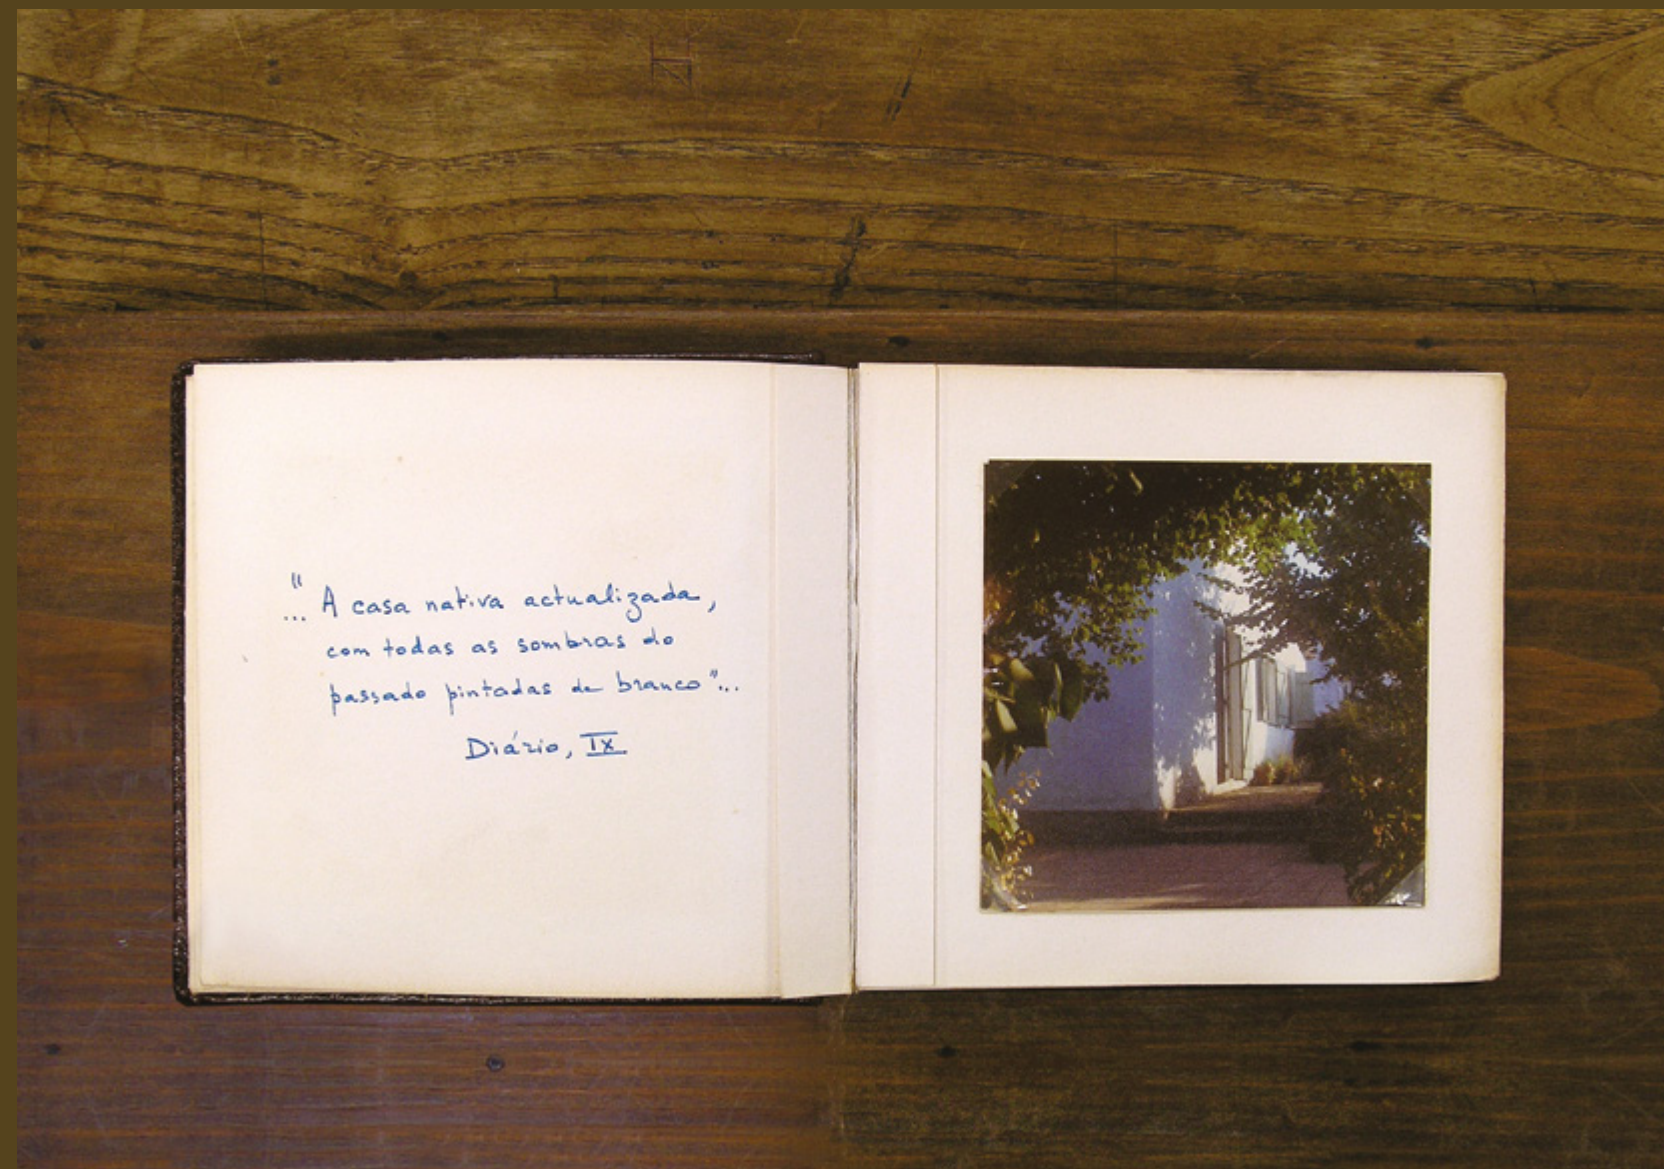 ..." A casa nativa actualizada,
com todas as sombras do
passado pintadas de branco"...
Diário, IX